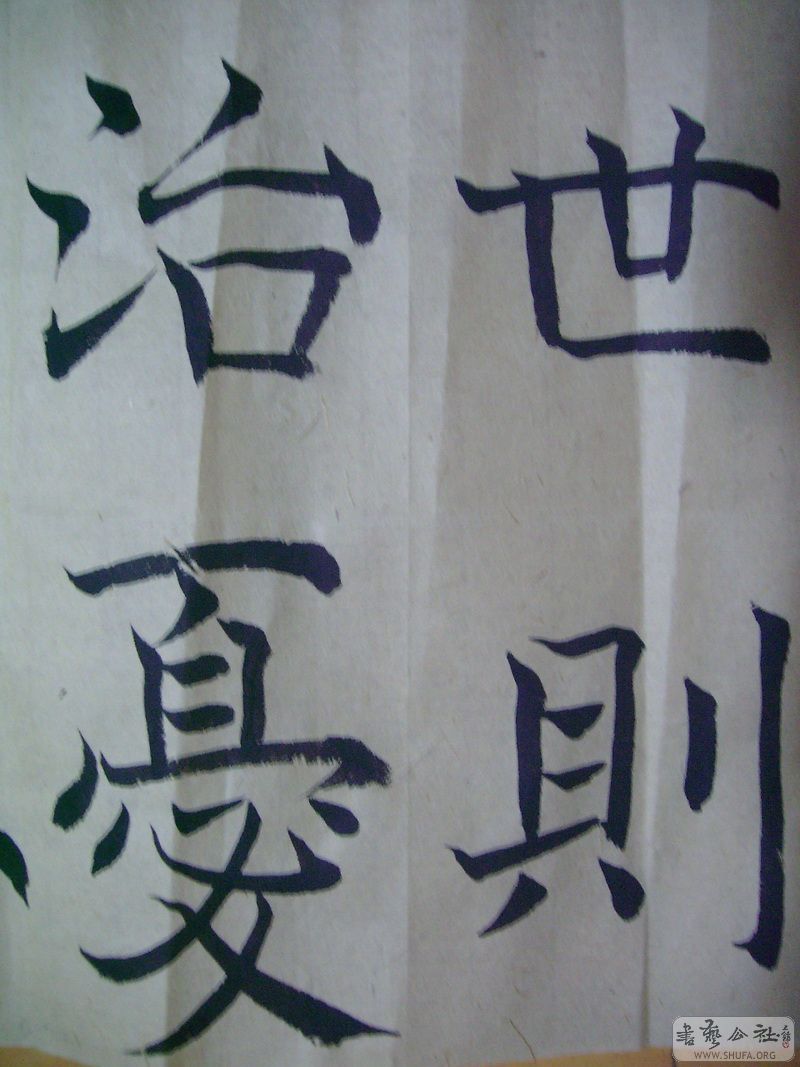 世則
治憂
書藝公社
WWW.SHUFA.ORG